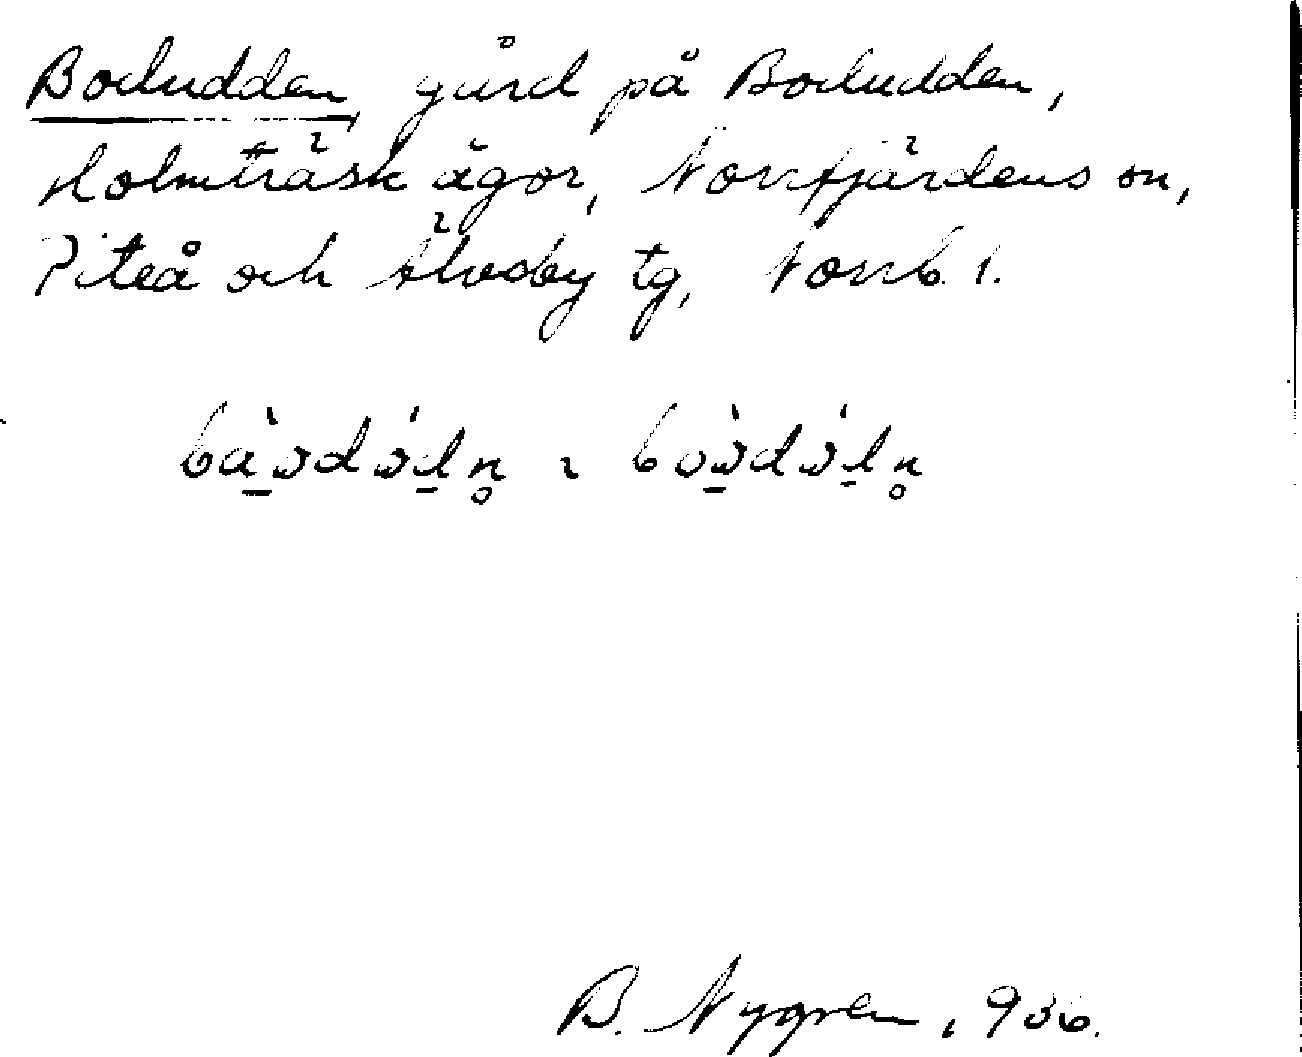 Bodudden, gård på Bodudden,
Holmträsk ägor, Norrfjärdens sn,
Piteå och Älvsby tg, Norrb. l.
B. Nygren, 936.